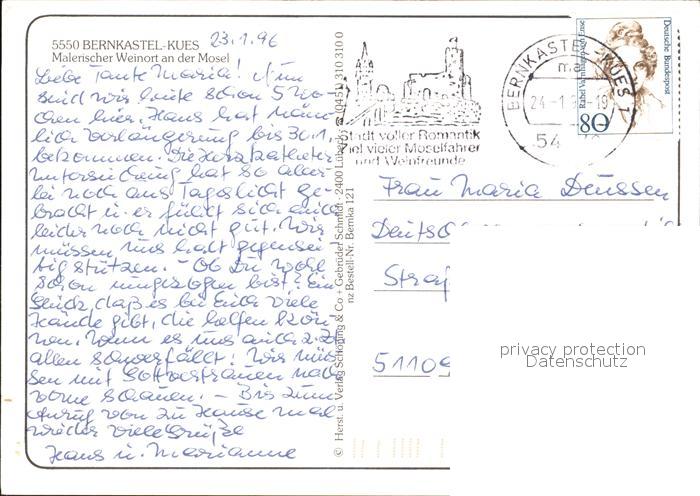 5550 BERNKASTEL-KUES
23.1.96
Malerischer Weinort an der Mosel
Liebe Tante Maria! Nun
sind wir heute schon 5 Wo-
chen hier. Hans hat näm-
lich Verlängerung bis 30.1.
bekommen. Die Herzkatheter-
untersuchung hat so aller-
lei noch ans Tageslicht ge-
bracht u. er fühlt sich auch
leider noch nicht gut. Wir
müssen uns halt gegensei-
tig stützen. - Ob Du wohl
schon umgezogen bist? Ein
Glück daß es bei Euch viele
Hände gibt, die helfen kön-
nen, wenn es uns auch z.Zt.
allen schwerfällt! Wir müs-
sen mit Gottvertrauen nach
vorne schauen. - Bis zum
Anruf von zu Hause mal
wieder viele Grüße
Hans u. Marianne
© Herst. u. Verlag Schöning & Co + Gebrüder Schmidt · 2400 Lübeck (0451) 310 310 0
nz Bestell-Nr. Bernka 121
Stadt voller Romantik
Ziel vieler Moselfahrer
und Weinfreunde
BERNKASTEL-KUES 1
24.-1.9 -19
54
Deutsche Bundespost
Rahel Varnhagen von Ense
80
Frau Maria Deussen
Deutsc
Straß
51109
privacy protection
Datenschutz